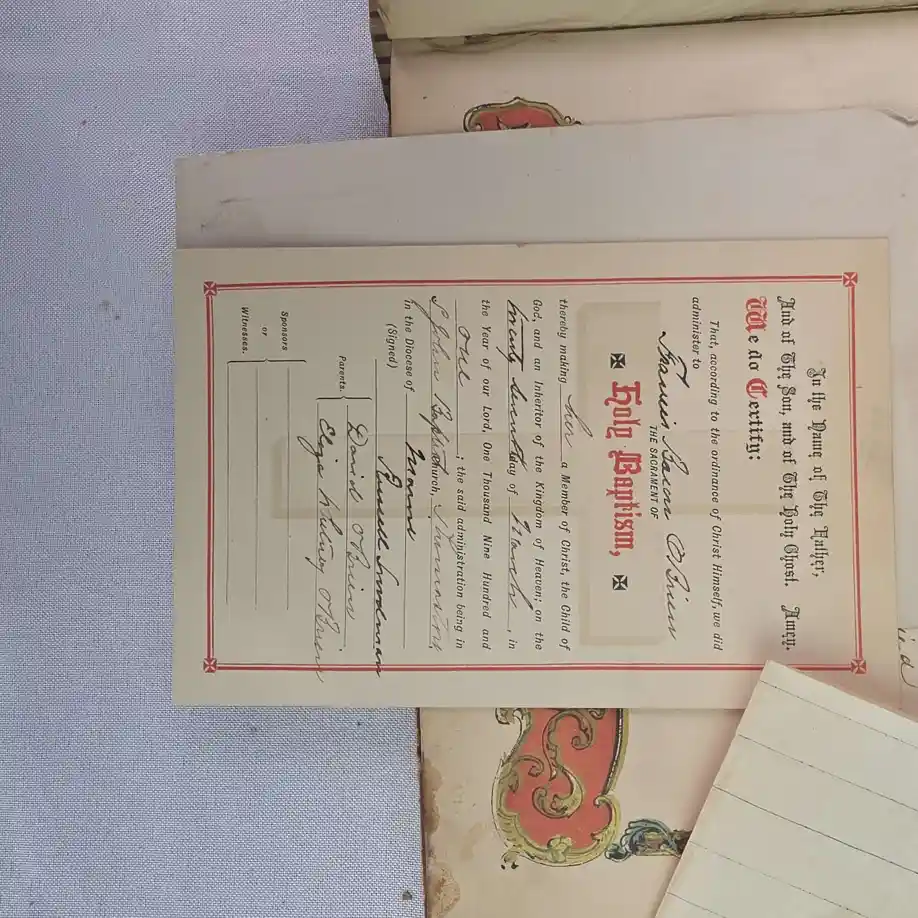 In the Name of The Father,
And of The Son, and of The Holy Ghost. Amen.
We do Certify:
That, according to the ordinance of Christ Himself, we did
administer to
Frances Bacon O'Brien
THE SACRAMENT OF
Holy Baptism,
thereby making her a Member of Christ, the Child of
God, and an Inheritor of the Kingdom of Heaven; on the
twenty seventh day of March, in
the Year of our Lord, One Thousand Nine Hundred and
one; the said administration being in
St Johns Baptist Church, Thomaston,
in the Diocese of Maine
(Signed) Russell Woodman
Parents. David O'Brien
Eliza Whitney O'Brien
Sponsors
or
Witnesses.